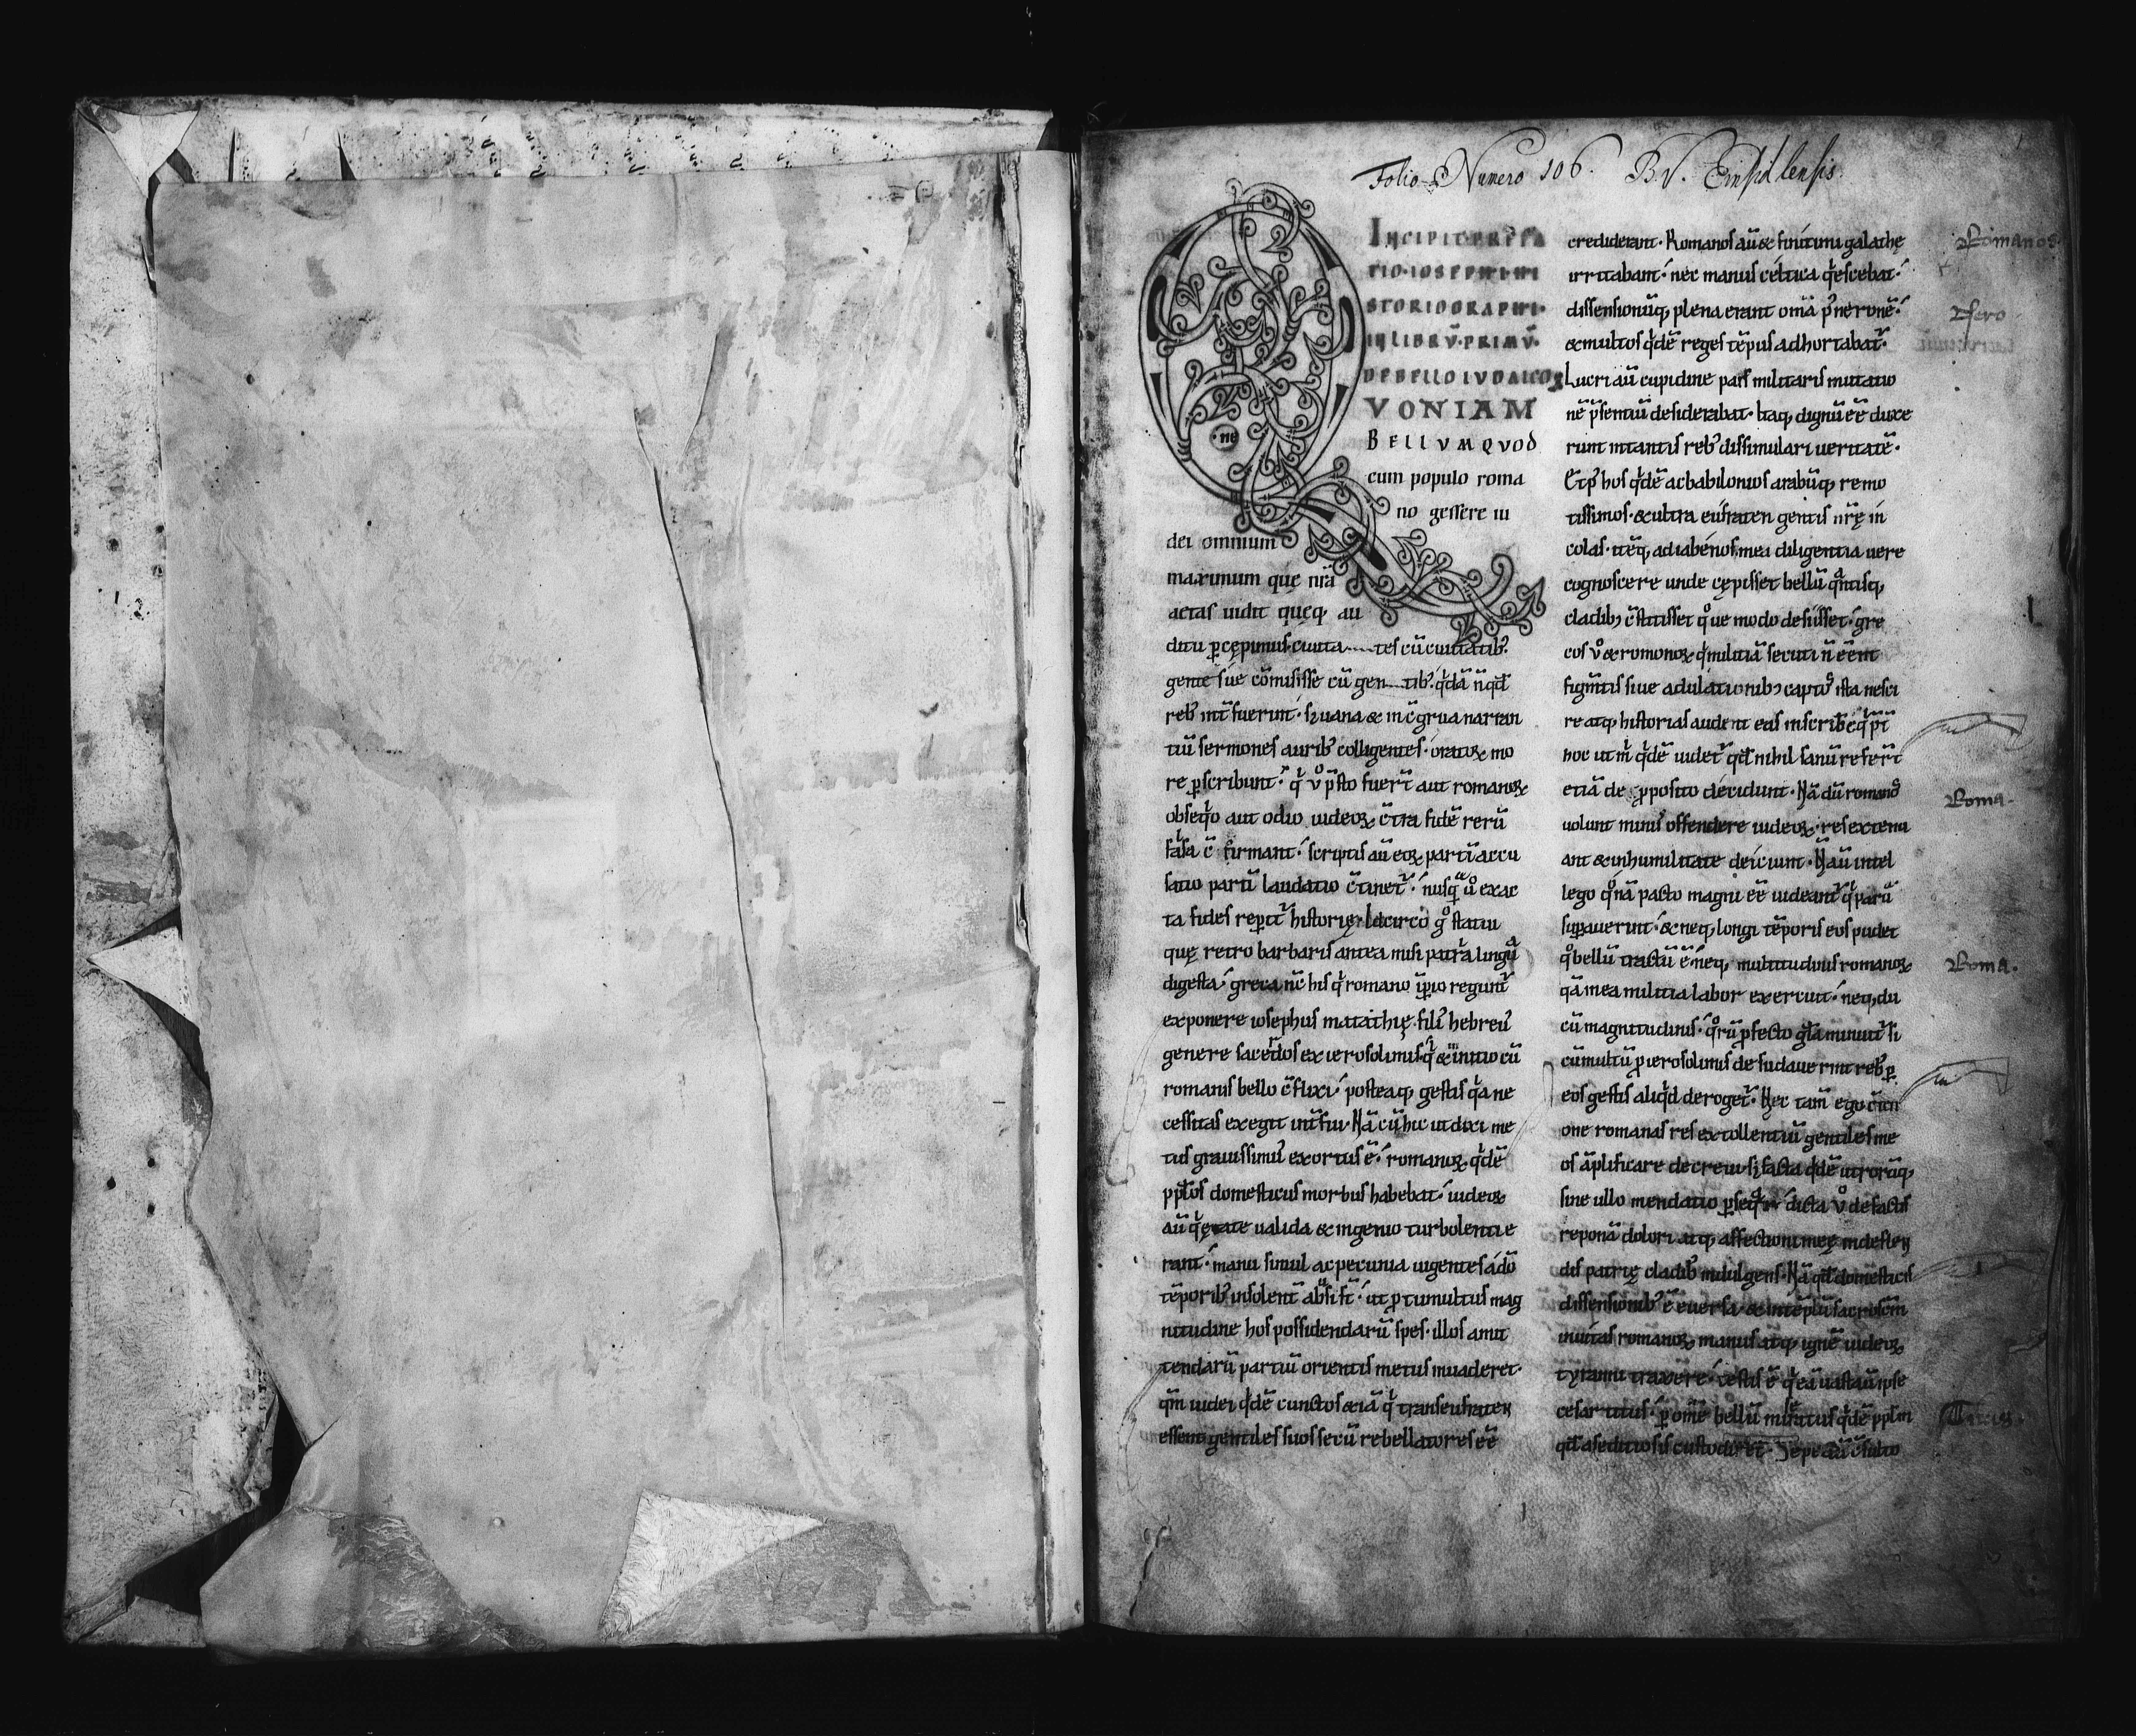 Folio Numero 106. B. V. Einsidlensis.
INCIPIT PREFA
TIO IOSEPHI HI
STORIOGRAPHI
IN LIBRV̄ PRIMV̄
DE BELLO IVDAICOꝝ
QVONIAM
BELLVM QVOD
cum populo roma
no gessere iu
dei omnium
maximum quę nr̄a
aetas uidit quęq; au
ditu ꝑcępimus ciuita tes cū ciuitatib᷒
gente sue cōmisisse cū gen tib᷒ qͥdā n̄ qd̄
reb᷒ int̄fuerunt· sꝫ uana & incgrua narran
tiū sermones aurib᷒ colligentes· oratoꝝ mo
re ꝑscribunt· qͥ uͦ p̄sto fuer̄t aut romanoꝝ
obseqͦo aut odio iudeoꝝ c̄tra fidē rerū
falsa c̄firmant· scriptis aū eoꝝ partī accu
satio partī laudatio c̄tinet᷒· nusqͣ uͦ exac
ta fides reꝑit᷒ historię· Idcirco gͦ statui
quę retro barbaris antea misi patria linguͣ
digesta· greca nc̄ his qͥ romano īꝑio regunt᷒
exponere iosephus matathię fili᷒ hebreu᷒
genere sacerdos ex ierosolimis qͥ & initio cū
romanis bello c̄flixi· posteaq; gestis qͥa ne
cessitas exegit int̄fui· Nā cū hic ut dixi me
tus grauissimu᷒ exortus ē· romanoꝝ qͥdē
pp̄los domesticus morbus habebat· iudeoꝝ
aū qͥ ętate ualida & ingenio turbolenti e
rant· manu simul ac pecunia uigentes ádō
tēporib᷒ insolent̄ abusi st̄· ut ꝑ tumultus mag
nitudine hos possidendarū spes· illos amit
tendarū partiū orientis metus inuaderet·
qm̄ iudei qͥdē cunctos &iā qͥ trans eufraten
essent gentiles suos secū rebellatores eē
crediderant· Romanos aū & finitimi galathę
irritabant· nec manus céltica qͥescebat·
dissensionūq; plena erant om̄ia p᷒ neronē·
& multos qͥdē reges tēpus adhortabat᷒·
Lucri aū cupidine pars militaris mutatio
nē p̄sentiū desiderabat· Itaq; dignū eē duxe
runt in tantis reb᷒ dissimulari ueritatē·
Et p᷒ hos qͥdē ac babilonios arabūq; remo
tissimos· & ultra eufraten gentis nr̄ę in
colas· itēq; adiabénos mea diligentia uere
cognoscere unde cępisset bellū qͣntisq;
cladib; c̄stitisset qͦue modo desiisset· gre
cos uͦ & romonoꝝ qͥ militiā secuti n̄ eent
figmtis siue adulationib; captos ista nesci
re atq; historias audent eas inscribe
hoc ut m̄ qͥdē uidet᷒ qd̄ nihil sanū refer̄t
etiā de ꝓposito décidunt· Nā dū romanoͦ
uolunt minus offendere iudeoꝝ res extenu
ant & in humilitate deiciunt· N̄ aū intel
lego qͦnā pacto magni eē uideant᷒ qͥ parua
suꝑauerint· & neq; longi tēporis eos pudet
qͦ bellū tractū ē· neq; multitudinis romanoꝝ
qͣ in ea militia labor exercuit· neq; du
cū magnitudinis· qͦrū ꝓfecto gl̄a minuit᷒ si
cū multū ꝓ ierosolimis desudauerint reb᷒ ꝑ
eos gestis aliqͥd deroget᷒· Nec tam̄ ego
one romanas res extollentiū gentiles me
os āplificare decreui· sꝫ facta qͥdē utroꝝq;
sine ullo mendatio ꝑseqͣr dicta uͦ de factis
reponā dolori atq; affectioni meę in deflen
dis patrię cladib᷒ indulgens· Nā qd̄ domesticis
dissensionib᷒ ē euersa· & in tēplū sacrosc̄m
inuitas romanoꝝ manus atq; ignē iudeoꝝ
tyranni traxere· testis ē qͥ eā uastauit ipse
cesar titus· ꝑ omē bellū miseratus qͥdē pplm̄
qd̄ a seditiosis custodiret᷒· Sepe aū c̄sulto
Romanos
Nero
Roma.
Roma.
Titus.